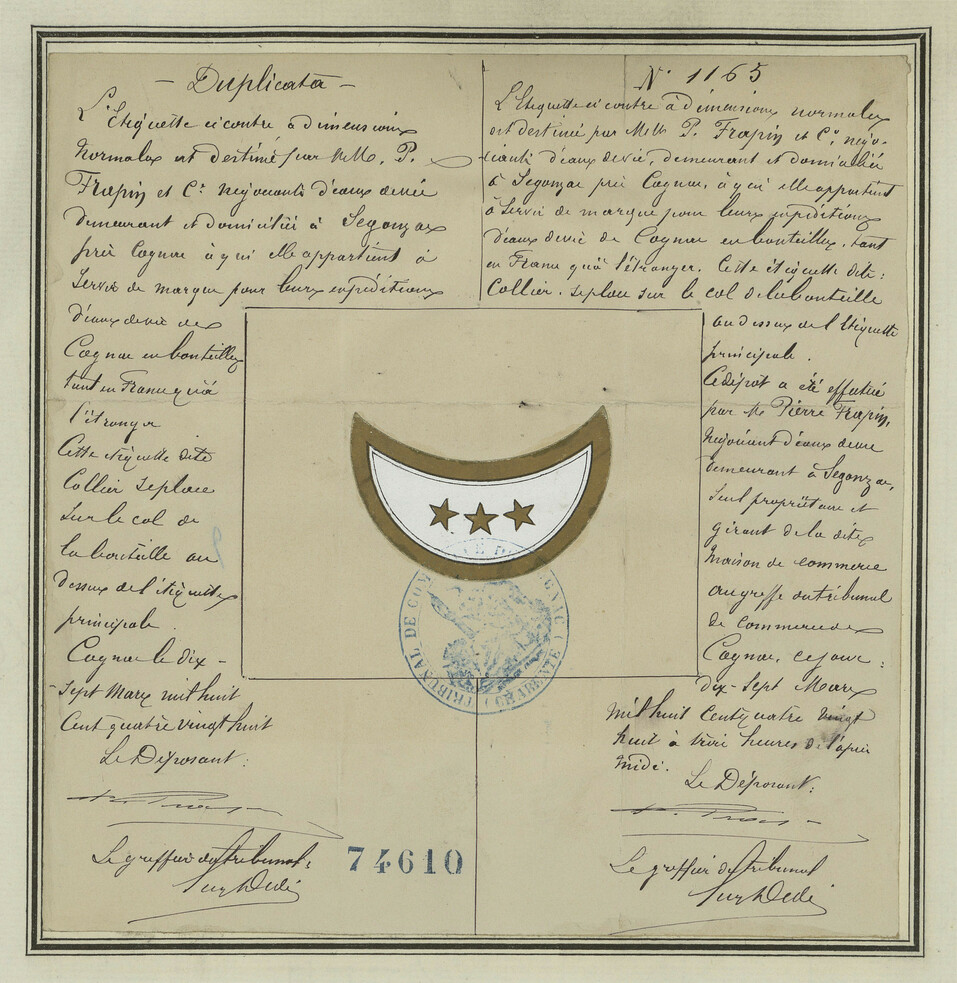 - Duplicata -
L'Etiquette ci contre à dimensions
Normales est destinée par MM. P.
Frapin et Cie négociants d'eaux de vie
demeurant et domiciliés à Segonzac
près Cognac à qui elle appartient à
servir de marque pour leurs expéditions
d'eaux de vie de
Cognac en bouteilles
tant en France qu'à
l'étranger
Cette étiquette dite
Collier se place
sur le col de
la bouteille au
dessus de l'étiquette
principale.
Cognac le dix-
sept Mars mil huit
Cent quatre vingt huit
Le Déposant:
Le greffier du tribunal:
N° 1165
L'Etiquette ci contre à dimensions normales
est destinée par MM. P. Frapin et Cie, négo-
ciants d'eaux de vie, demeurant et domiciliés
à Segonzac près Cognac, à qui elle appartient
à servir de marque pour leurs expéditions
d'eaux de vie de Cognac en bouteilles, tant
en France qu'à l'étranger. Cette étiquette dite:
Collier, se place sur le col de la bouteille
au dessus de l'étiquette
principale.
Ce dépôt a été effectué
par Mr Pierre Frapin,
Négociant d'eaux de vie
demeurant à Segonzac,
seul propriétaire et
gérant de la dite
Maison de commerce
au greffe du tribunal
de commerce de
Cognac, ce jour:
dix-sept Mars
mil huit Cent quatre vingt
huit à trois heures de l'après
midi.
Le Déposant:
Le greffier du tribunal
TRIBUNAL DE COMMERCE DE COGNAC (CHARENTE)
74610